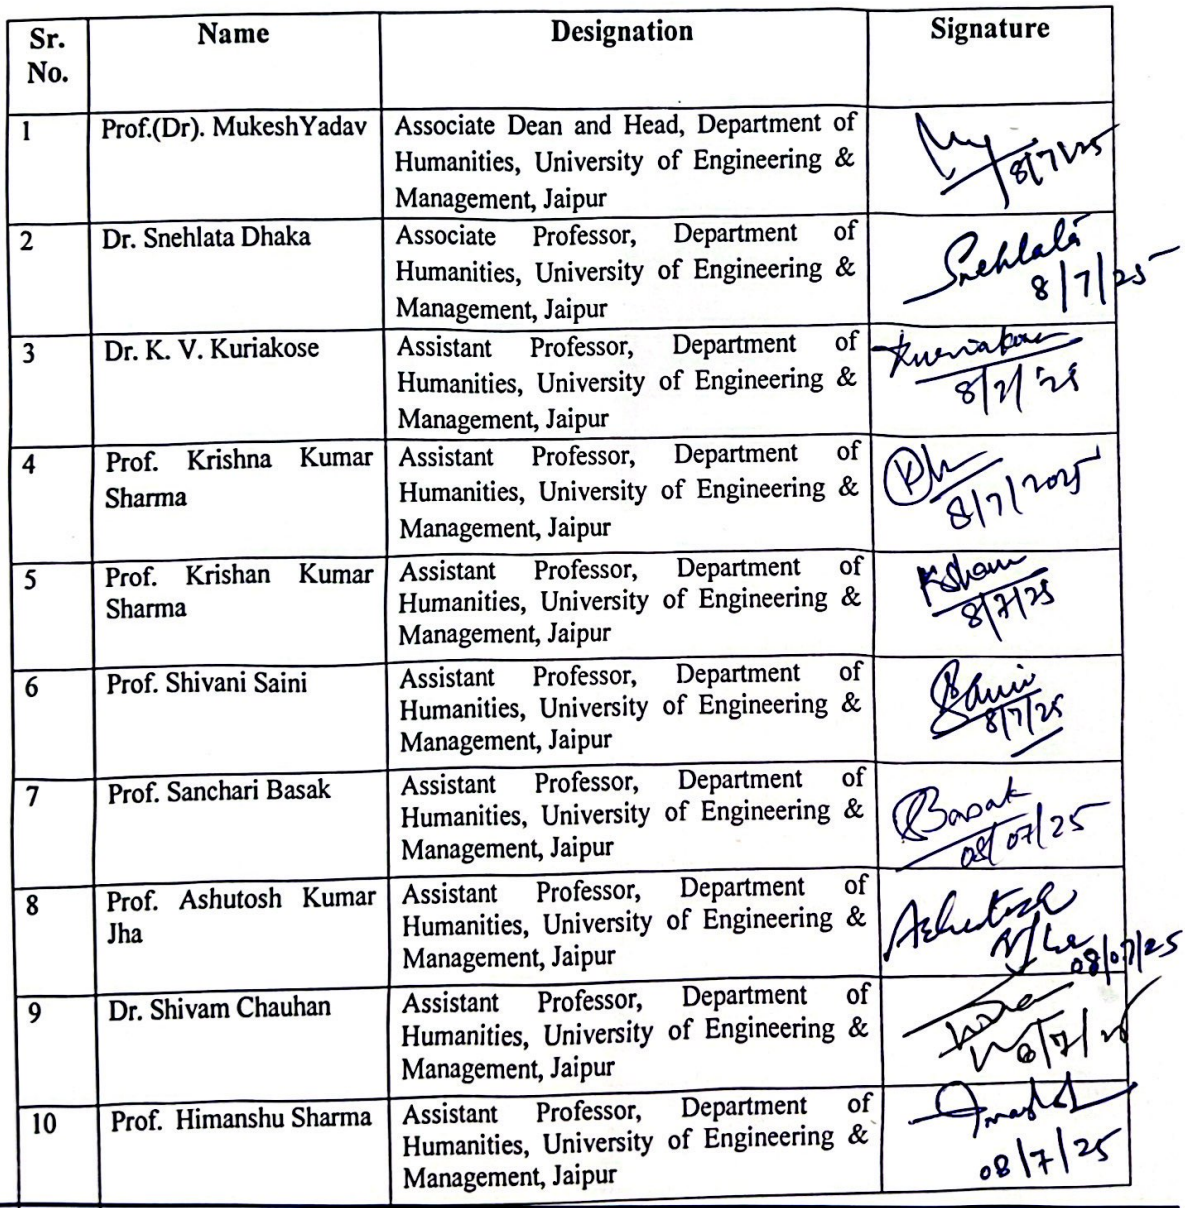 Sr. No.
Name
Designation
Signature
1
Prof.(Dr). MukeshYadav
Associate Dean and Head, Department of
Humanities, University of Engineering &
Management, Jaipur
8/7/25
2
Dr. Snehlata Dhaka
Associate Professor, Department of
Humanities, University of Engineering &
Management, Jaipur
Snehlata
8/7/25
3
Dr. K. V. Kuriakose
Assistant Professor, Department of
Humanities, University of Engineering &
Management, Jaipur
Kuriakose
8/7/'25
4
Prof. Krishna Kumar
Sharma
Assistant Professor, Department of
Humanities, University of Engineering &
Management, Jaipur
8/7/2025
5
Prof. Krishan Kumar
Sharma
Assistant Professor, Department of
Humanities, University of Engineering &
Management, Jaipur
8/7/25
6
Prof. Shivani Saini
Assistant Professor, Department of
Humanities, University of Engineering &
Management, Jaipur
Saini
8/7/25
7
Prof. Sanchari Basak
Assistant Professor, Department of
Humanities, University of Engineering &
Management, Jaipur
Basak
08/07/25
8
Prof. Ashutosh Kumar
Jha
Assistant Professor, Department of
Humanities, University of Engineering &
Management, Jaipur
Ashutosh
08/07/25
9
Dr. Shivam Chauhan
Assistant Professor, Department of
Humanities, University of Engineering &
Management, Jaipur
8/7/25
10
Prof. Himanshu Sharma
Assistant Professor, Department of
Humanities, University of Engineering &
Management, Jaipur
08/7/25